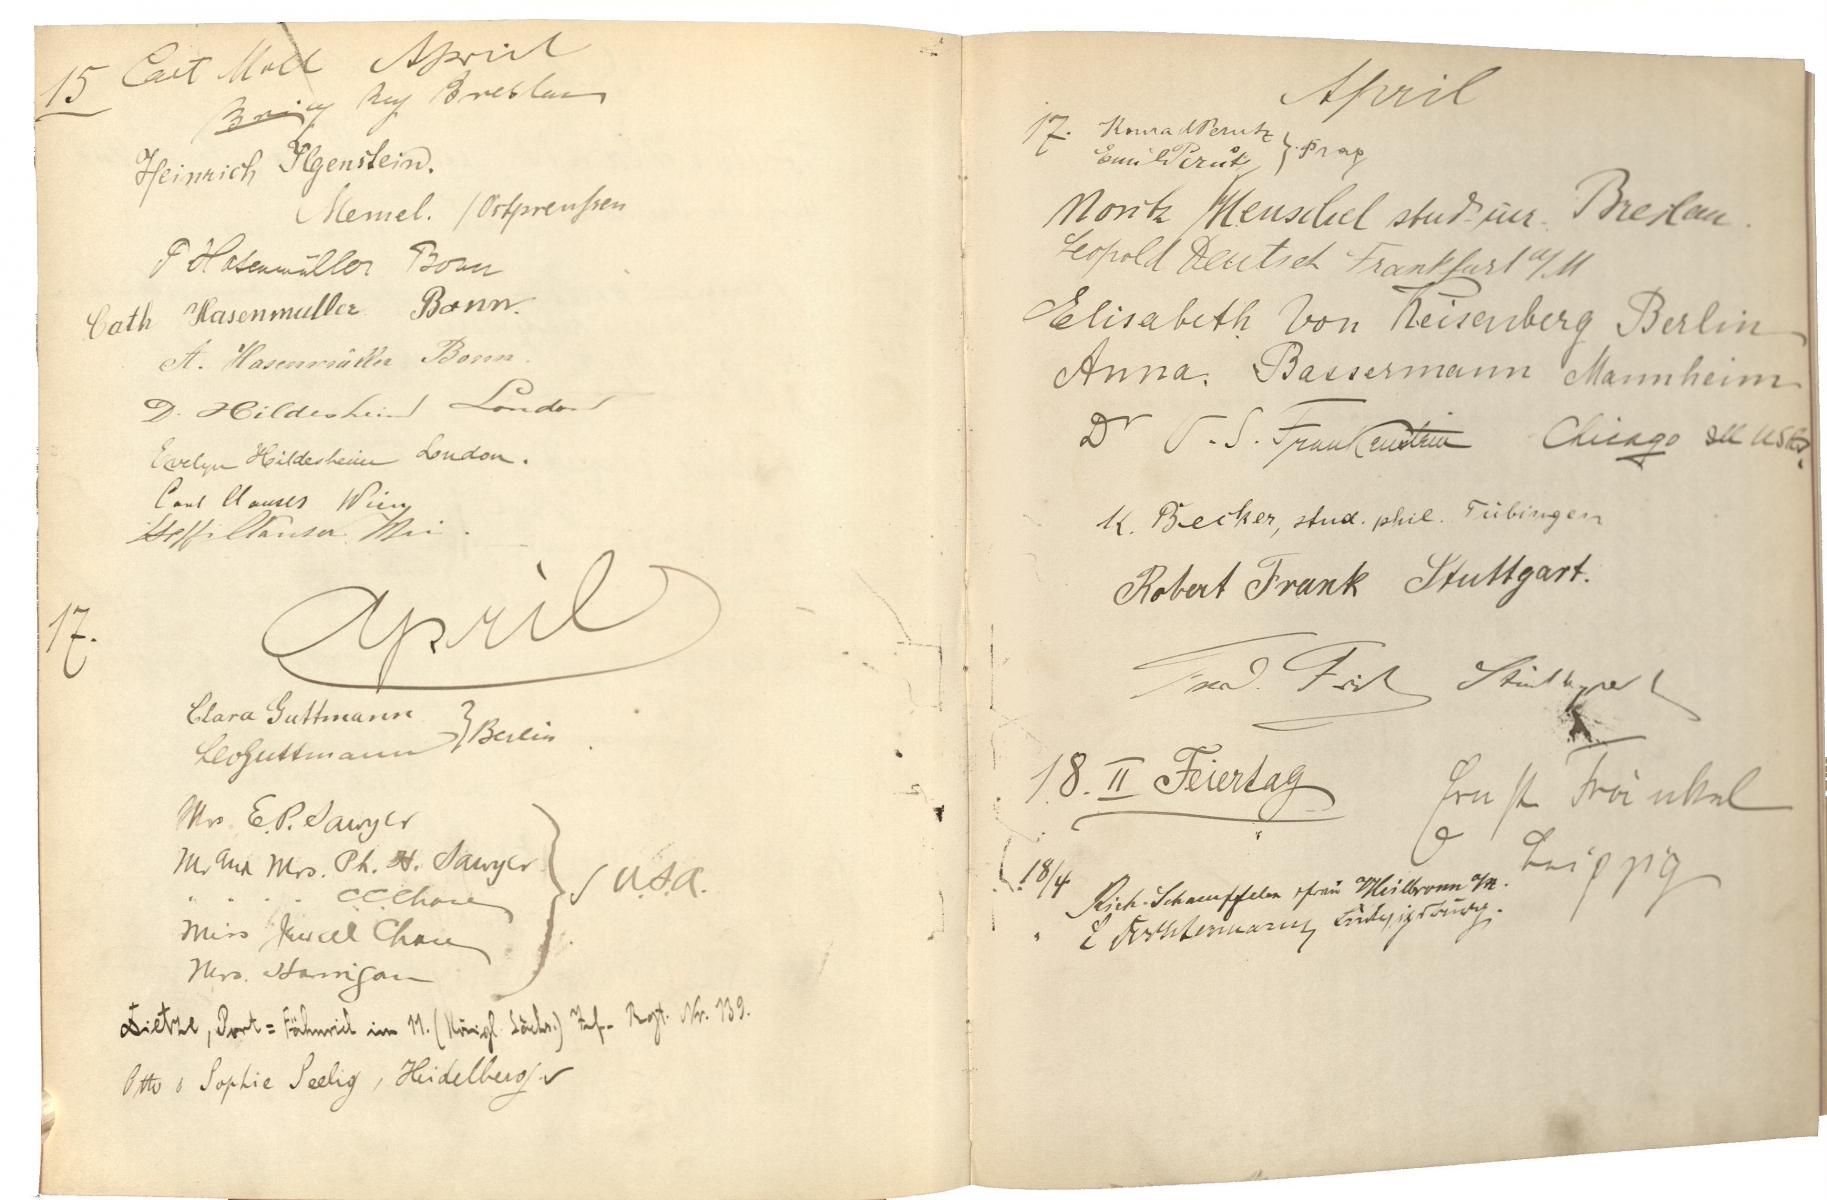 15 Carl Moll April
Breslau
Heinrich Ilgenstein.
Memel. /Ostpreußen
P Hasenmüller Bonn
Cath Hasenmuller Bonn.
A. Hasenmüller Bonn.
D. Hildesheim London
Evelyn Hildesheim London.
Carl Clauser Wien
Steffi Clauser Wien
17. April
Clara Guttmann
Leo Guttmann } Berlin
Mrs. E.P. Sawyer
Mr and Mrs. Ph. H. Sawyer
" " " " C.C. Chase
Miss Jewell Chase
Mrs. Harrigan
} U.S.A.
Dietze, Port=Fähnrich im 11. (Königl. Sächs.) Inf. Regt. Nr. 139.
Otto u Sophie Seelig, Heidelberg
April
17. Konrad Perutz
Emil Perutz } Prag
Moritz Henschel stud. jur. Breslau.
Leopold Deutsch Frankfurt a/M
Elisabeth von Reisenberg Berlin
Anna. Bassermann Mannheim
Dr V. S. Frankenstein Chicago Ill USA.
K. Becker, stud. phil. Tübingen
Robert Frank Stuttgart.
Stuttgart
18. II Feiertag
Ernst Fränkel
Leipzig
18/4 Rich. Schaeuffelen & Frau Heilbronn a/N.
" E Ludwigsburg.